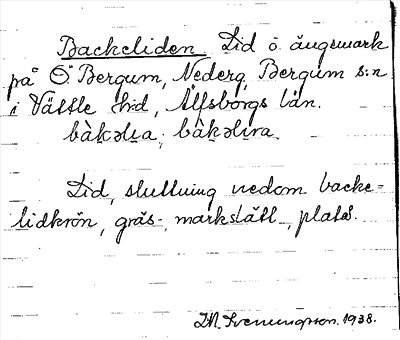 Backeliden Lid ö. ängsmark
på Ö. Bergum, Nederg, Bergum s:n
i Vättle hd, Älfsborgs län.
bàkəlıa, bàkəlıva.
Lid, sluttning nedom backe=
lidkrön, gräs-, markslätt-, platå.
1938.